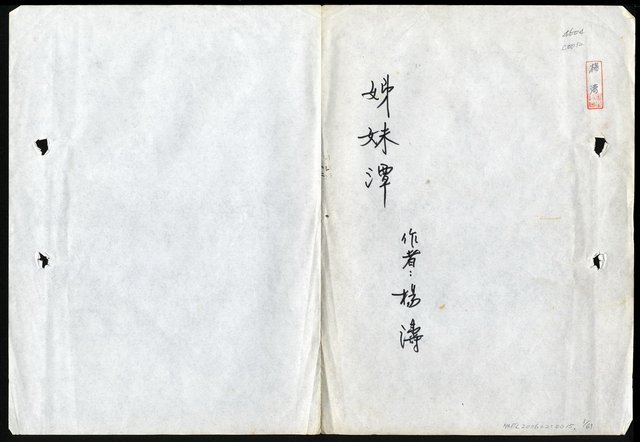 姊妹潭
作者：楊濤
楊濤
4604
1/61